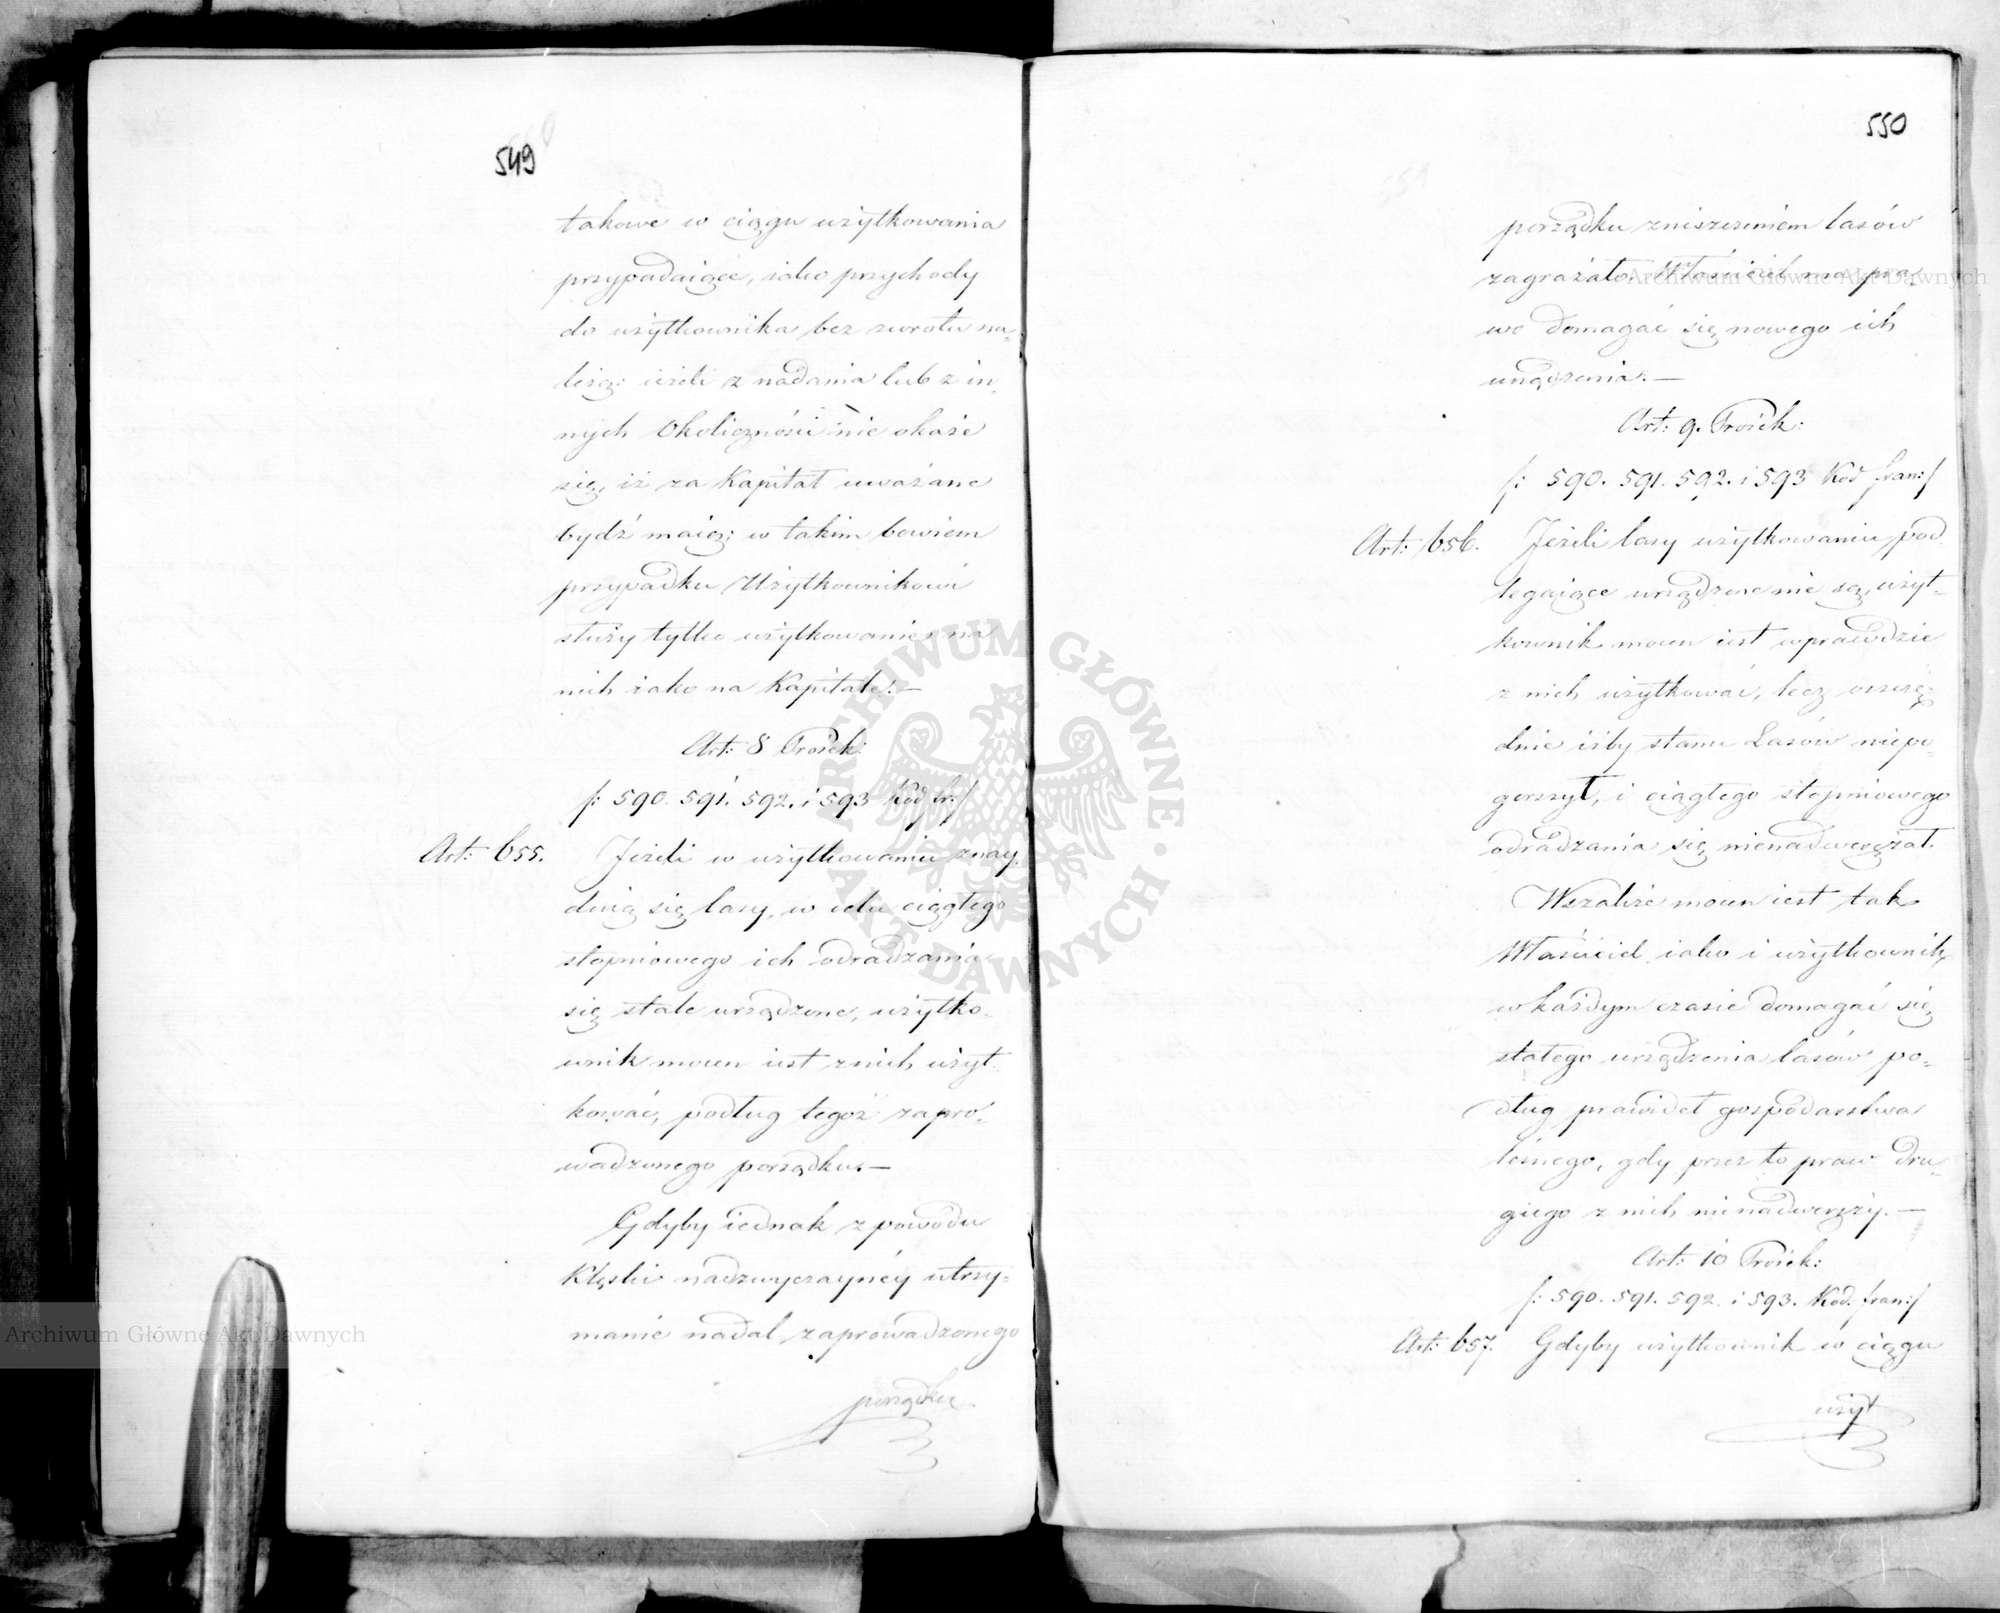 549
takowe w ciągu użytkowania
przypadaiące, iako przychody
do użytkownika bez zwrotu na-
leżą: ieżeli z nadania lub z in-
nych Okoliczności nie okaże
się, iż za Kapitał uważane
bydź maią; w takim bowiem
przypadku Użytkownikowi
służy tylko użytkowanie na
nich iako na Kapitale. —
Art: 8 Proiek:
/: 590. 591. 592. i 593 Kod fr:/
Art: 655. Jeżeli w użytkowaniu znay-
duią się lasy, w celu ciągłego
stopniowego ich odradzania
się stale urządzone, użytko-
wnik mocen iest z nich użyt-
kować, podług tegoż zapro-
wadzonego porządku. —
Gdyby iednak z powodu
Klęski nadzwyczaynéy utrzy-
manie nadal zaprowadzonego
porządku
550
porządku zniszczeniem lasów
zagrażało. Właściciel ma pra-
wo domagać się nowego ich
urządzenia. —
Art: 9. Proiek:
/: 590. 591. 592. i 593 Kod fran:/
Art: 656. Jeżeli lasy użytkowaniu pod-
legaiące urządzone nie są, użyt-
kownik mocen iest wprawdzie
z nich użytkować, lecz oszczę-
dnie iżby stanu Lasów niepo-
gorszył, i ciągłego stopniowego
odradzania się nienadwerężał.
Wszakże mocen iest tak
Właściciel iako i użytkownik,
w każdym czasie domagać się
stałego urządzenia lasów po-
dług prawideł gospodarstwa
leśnego, gdy przez to praw dru-
giego z nich nienadweręży. —
Art: 10 Proiek:
/: 590. 591. 592. i 593. Kod. fran:/
Art: 657. Gdyby użytkownik w ciągu
użyt
Archiwum Główne Akt Dawnych
Archiwum Główne Akt Dawnych
ARCHIWUM GŁÓWNE · AKT DAWNYCH ·